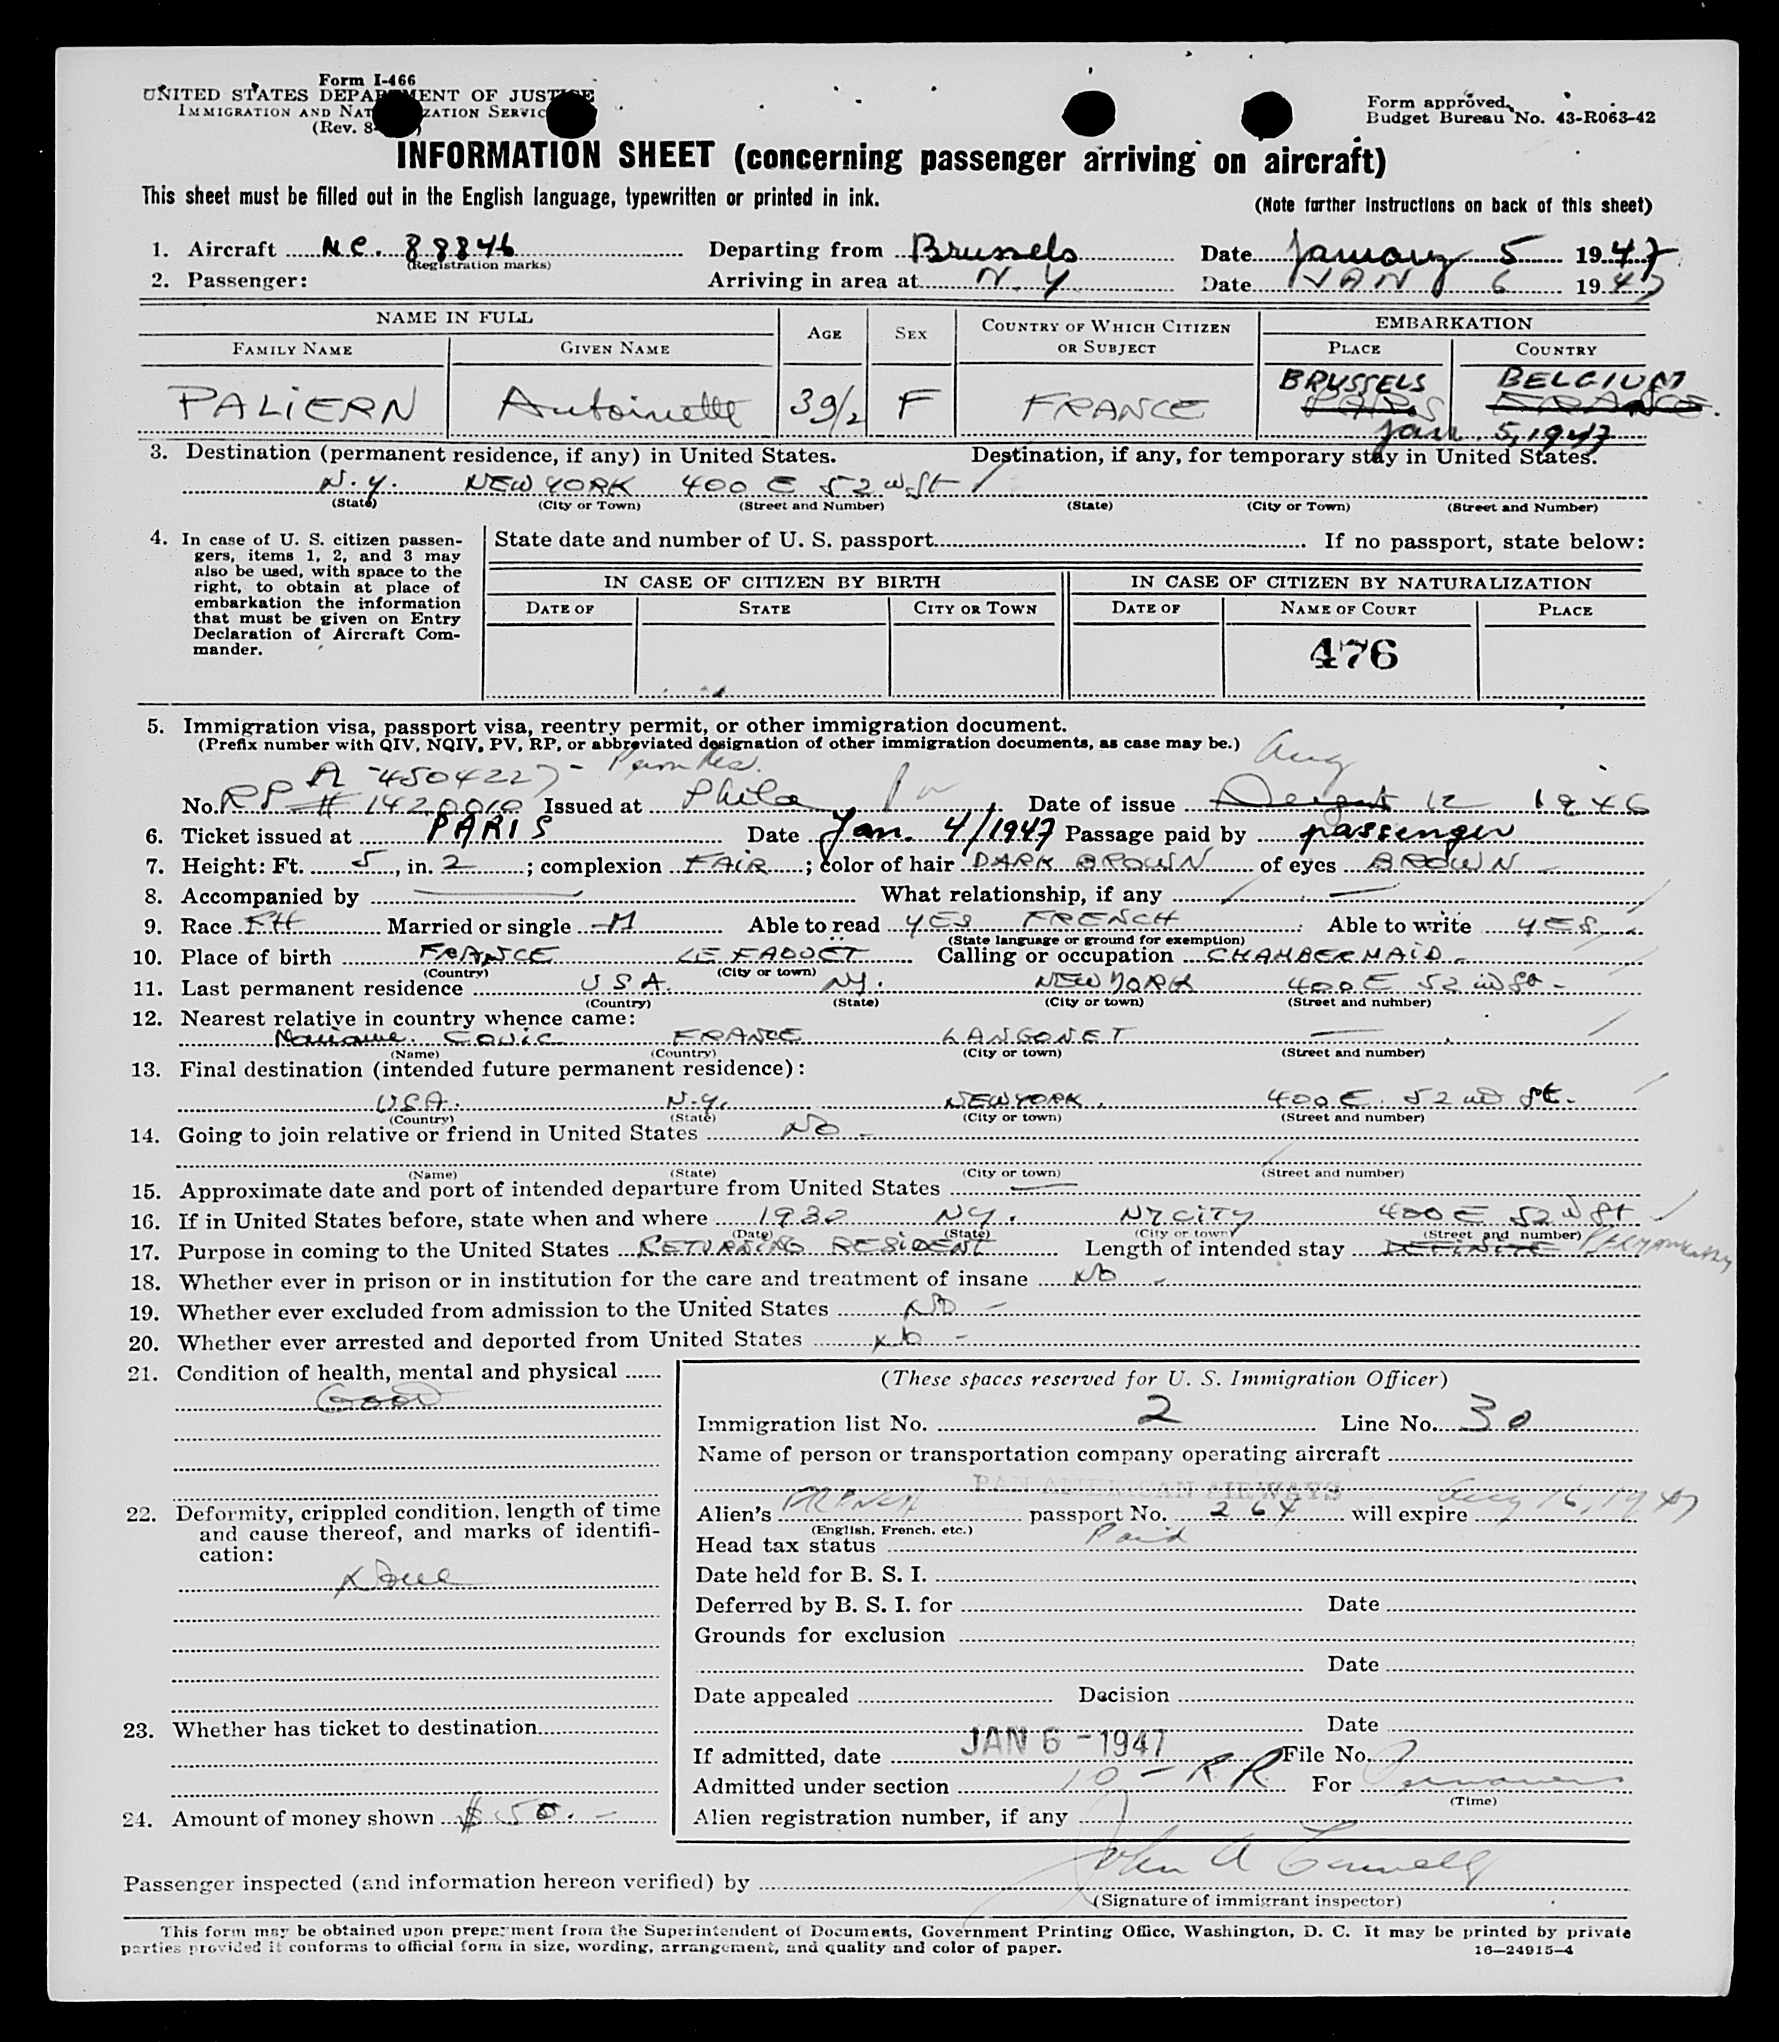 Form I-466
UNITED STATES DEPARTMENT OF JUSTICE
IMMIGRATION AND NATURALIZATION SERVICE
(Rev. 8-
Form approved.
Budget Bureau No. 43-R063-42
INFORMATION SHEET (concerning passenger arriving on aircraft)
This sheet must be filled out in the English language, typewritten or printed in ink.
(Note further instructions on back of this sheet)
1. Aircraft N.C. 88846 Departing from Brussels Date January 5 1947
(Registration marks)
2. Passenger: Arriving in area at N.Y Date JAN 6 1947
NAME IN FULL AGE SEX COUNTRY OF WHICH CITIZEN OR SUBJECT EMBARKATION
FAMILY NAME GIVEN NAME PLACE COUNTRY
BRUSSELS BELGIUM
PALIERN Antoinette 39/2 F FRANCE PARIS FRANCE.
Jan. 5, 1947
3. Destination (permanent residence, if any) in United States. Destination, if any, for temporary stay in United States.
N.Y. NEW YORK 400 E 52 nd St
(State) (City or Town) (Street and Number) (State) (City or Town) (Street and Number)
4. In case of U. S. citizen passengers, items 1, 2, and 3 may also be used, with space to the right, to obtain at place of embarkation the information that must be given on Entry Declaration of Aircraft Commander.
State date and number of U. S. passport If no passport, state below:
IN CASE OF CITIZEN BY BIRTH IN CASE OF CITIZEN BY NATURALIZATION
DATE OF STATE CITY OR TOWN DATE OF NAME OF COURT PLACE
476
5. Immigration visa, passport visa, reentry permit, or other immigration document.
(Prefix number with QIV, NQIV, PV, RP, or abbreviated designation of other immigration documents, as case may be.)
A-4504227 - Aug
No. RP # 1420010 Issued at Phila Pa Date of issue August 12 1946
6. Ticket issued at PARIS Date Jan. 4/1947 Passage paid by passenger
7. Height: Ft. 5, in. 2; complexion FAIR; color of hair DARK BROWN of eyes BROWN
8. Accompanied by — What relationship, if any —
9. Race FH Married or single M Able to read YES FRENCH Able to write YES
(State language or ground for exemption)
10. Place of birth FRANCE LE FAOUËT Calling or occupation CHAMBERMAID
(Country) (City or town)
11. Last permanent residence USA. NY. NEW YORK 400 E 52 nd St
(Country) (State) (City or town) (Street and number)
12. Nearest relative in country whence came:
Mariane COUIC FRANCE LANGONET —
(Name) (Country) (City or town) (Street and number)
13. Final destination (intended future permanent residence):
USA. N.Y. NEW YORK. 400 E. 52 nd St.
(Country) (State) (City or town) (Street and number)
14. Going to join relative or friend in United States NO -
(Name) (State) (City or town) (Street and number)
15. Approximate date and port of intended departure from United States —
16. If in United States before, state when and where 1930 NY. NY CITY 400 E 52 nd St
(Date) (State) (City or town) (Street and number)
17. Purpose in coming to the United States RETURNING RESIDENT Length of intended stay DEFINITE Permanently
18. Whether ever in prison or in institution for the care and treatment of insane No -
19. Whether ever excluded from admission to the United States No -
20. Whether ever arrested and deported from United States No -
21. Condition of health, mental and physical
Good
22. Deformity, crippled condition, length of time and cause thereof, and marks of identification:
None
23. Whether has ticket to destination
24. Amount of money shown $ 50. -
(These spaces reserved for U. S. Immigration Officer)
Immigration list No. 2 Line No. 30
Name of person or transportation company operating aircraft
PAN AMERICAN AIRWAYS
Alien's FRENCH passport No. 264 will expire Aug 16, 1947
(English, French, etc.)
Head tax status Paid
Date held for B. S. I.
Deferred by B. S. I. for Date
Grounds for exclusion
Date
Date appealed Decision
Date
If admitted, date JAN 6 - 1947 File No.
Admitted under section 10 - RR For Permanent
(Time)
Alien registration number, if any
Passenger inspected (and information hereon verified) by John A
(Signature of immigrant inspector)
This form may be obtained upon prepayment from the Superintendent of Documents, Government Printing Office, Washington, D. C. It may be printed by private
parties provided it conforms to official form in size, wording, arrangement, and quality and color of paper.
16—24915-4